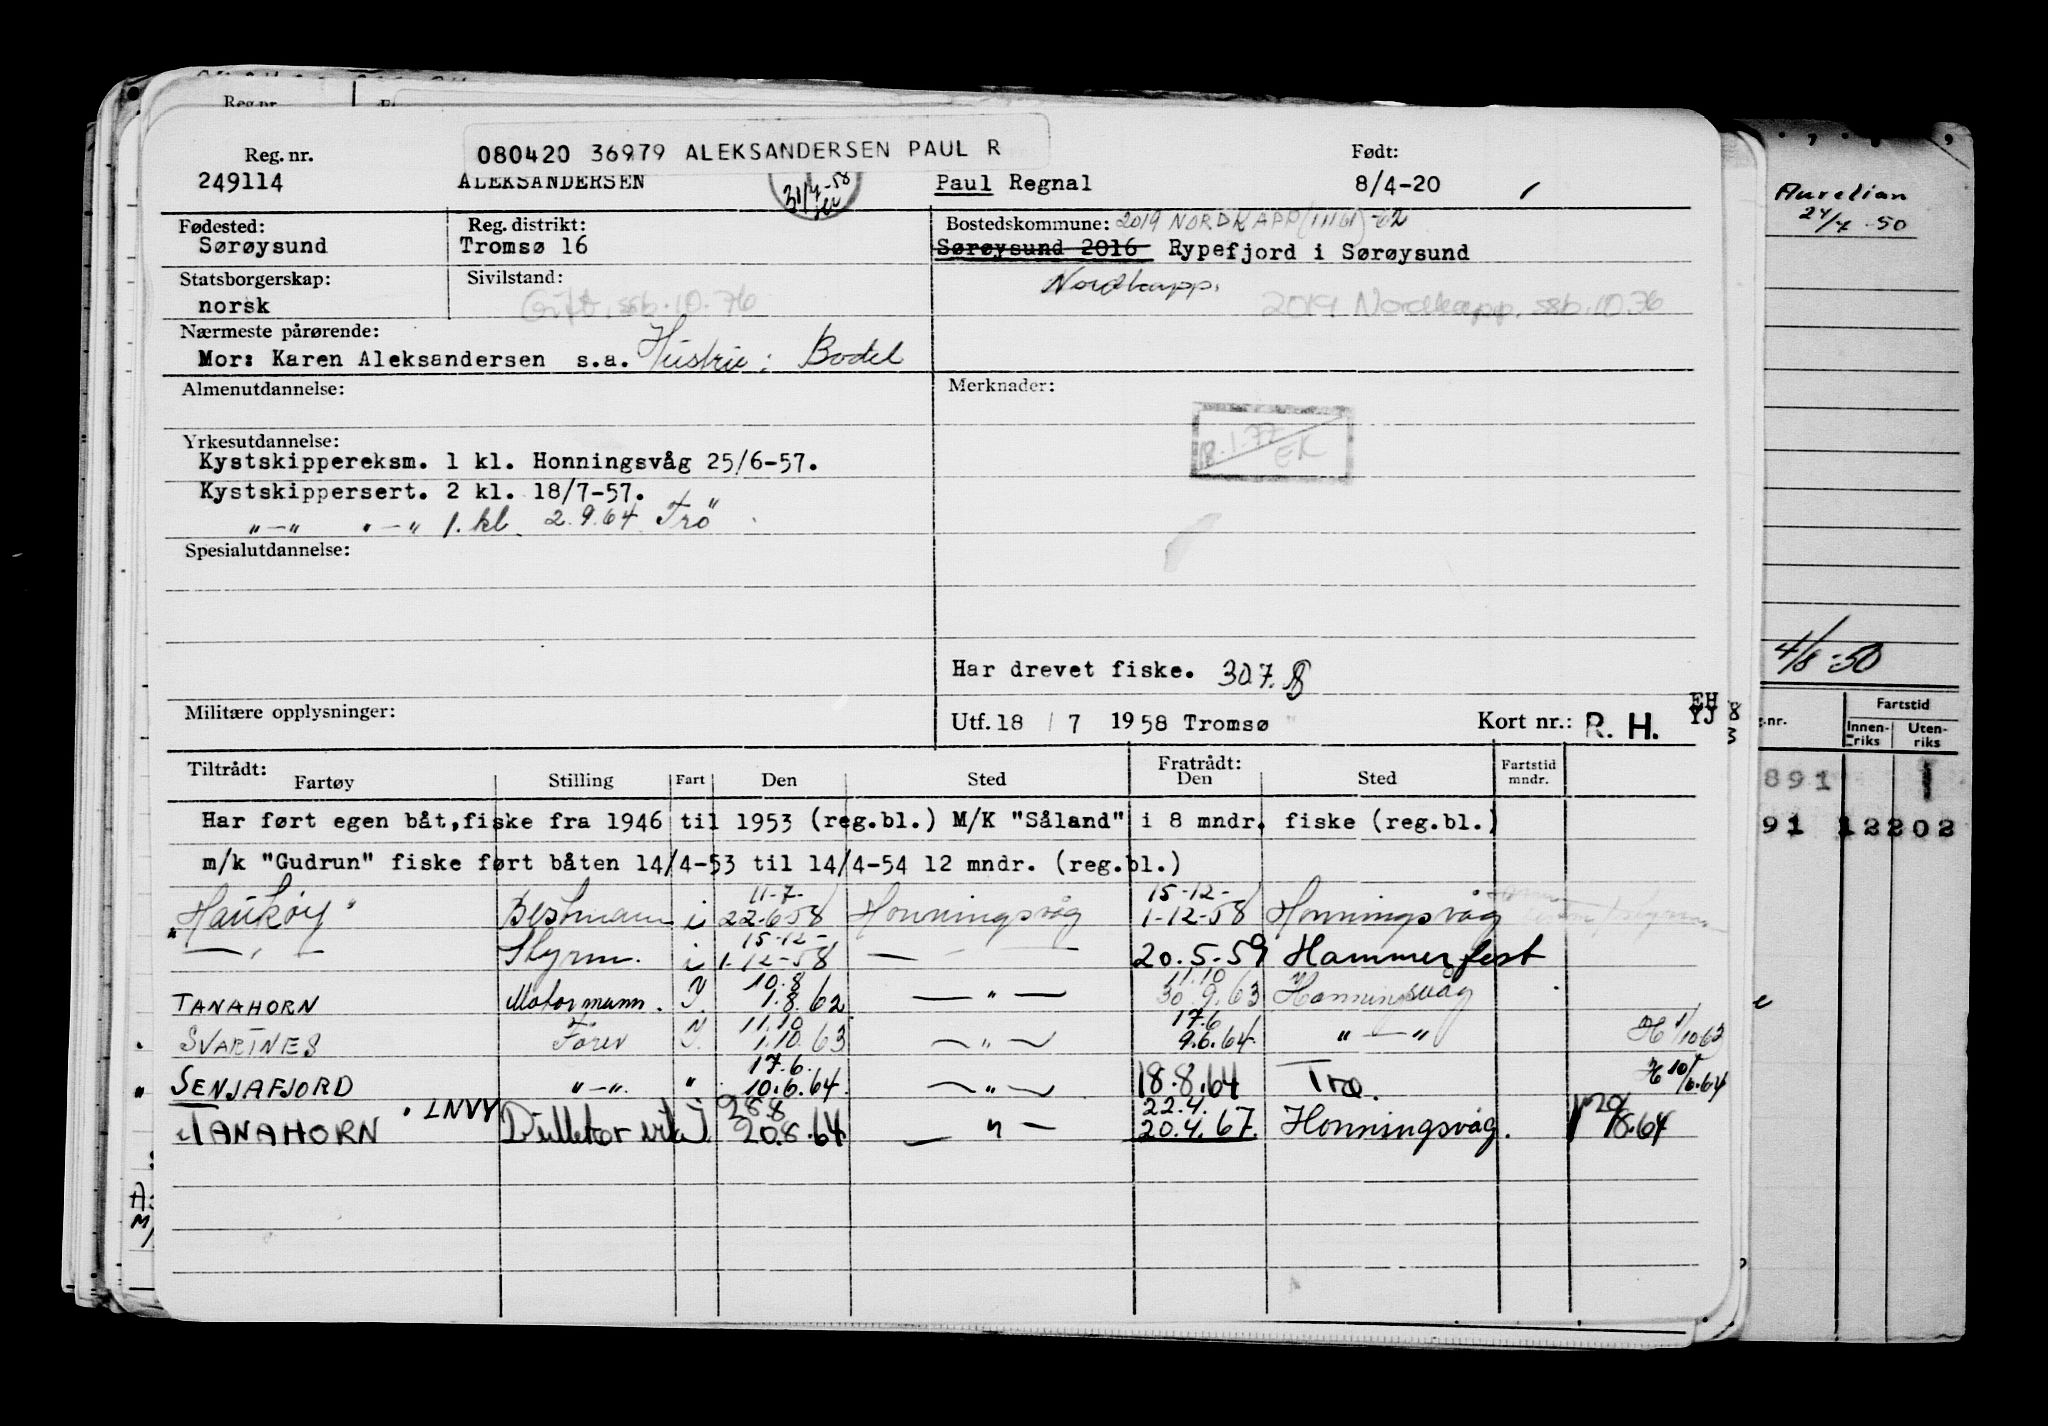 Reg. nr.
080420 36979 ALEKSANDERSEN PAUL R
Født:
249114 ALEKSANDERSEN 31/7-58 Paul Regnal 8/4-20
Fødested: Reg. distrikt: Bostedskommune: 2019 NORDKAPP (1/1161) -62
Sørøysund Tromsø 16 Sørøysund 2016 Rypefjord i Sørøysund
Statsborgerskap: Sivilstand: Nordkapp.
norsk Gift, ssb.10.76 2019 Nordkapp. ssb.10.76
Nærmeste pårørende:
Mor: Karen Aleksandersen s.a. Hustru: Bodel
Almenutdannelse: Merknader:
Yrkesutdannelse:
Kystskippereksm. 1 kl. Honningsvåg 25/6-57.
Kystskippersert. 2 kl. 18/7-57.
"—" "—" 1. kl. 2.9.64 Trö
Spesialutdannelse:
Har drevet fiske. 30.7.
Militære opplysninger:
Utf. 18 / 7 1958 Tromsø Kort nr.: R. H.
Tiltrådt: Fratrådt: Fartstid
Fartøy Stilling Fart Den Sted Den Sted mndr.
Har ført egen båt, fiske fra 1946 til 1953 (reg.bl.) M/K "Såland" i 8 mndr. fiske (reg.bl.)
m/k "Gudrun" fiske ført båten 14/4-53 til 14/4-54 12 mndr. (reg.bl.)
11-7- 15-12-
"Haukøy" Bestmann i 22-6-58 Honningsvåg 1-12-58 Honningsvåg
15-12-
— " — Styrm. i 1-12-58 — " — 20.5-59 Hammerfest
10.8 11.10
TANAHORN Motormann. I. 1.8.62 — " — 30.9.63 Honningsvåg
11.10 17.6
SVARTNES Förer I. 1.10.63 — " — 9.6.64. " — " H 1/10 63
17.6.
SENJAFJORD "—" " 10.6.64. — " — 18.8.64 Tro. H 10/6.64
28.8 22.4.
TANAHORN LNVY 20.8.64 — " — 20.4.67. Honningsvåg. 20/8.64
Aurelian
24/4 -50
4/8-50
Fartstid
Innen-riks Uten-riks
891 1
91 12202